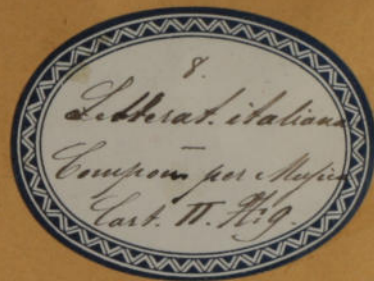 8.
Letterat. italiana
—
Compon per Musica
Cart. II. N. 9.